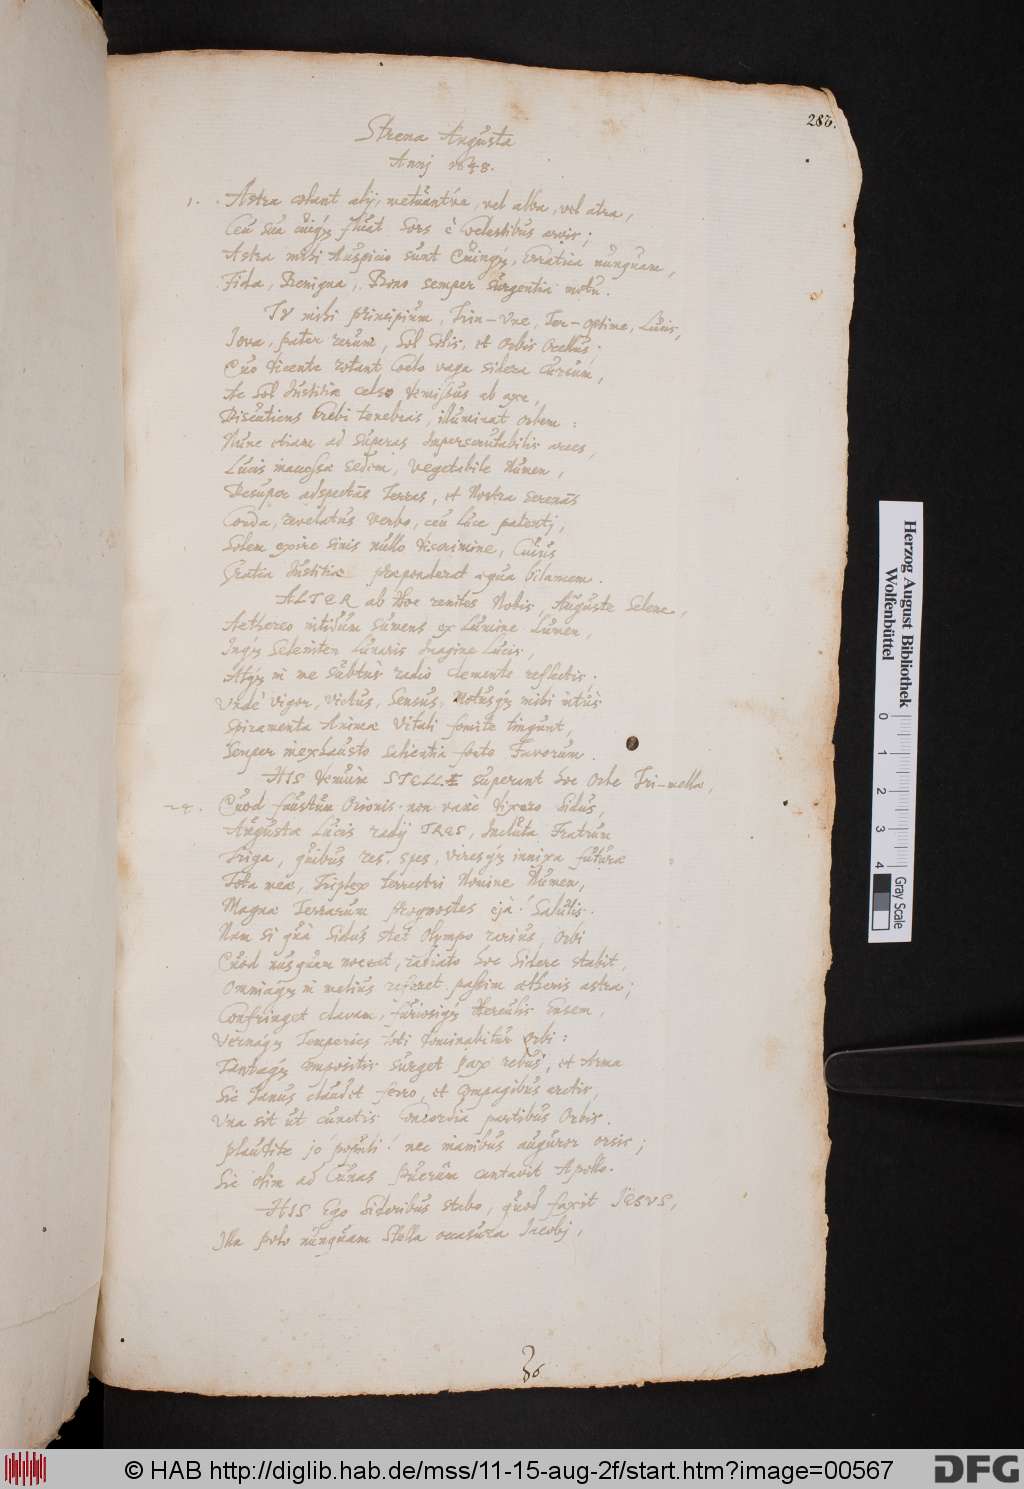 283.
Strena Augusta
Annj 1648.
1. Astra colant alij, metuantúe, vel alba, vel atra,
Ceu sua cuiqz fluat Sors è Coelestibus arvis;
Astra mihi Auspicio sunt Cuinqz, Erratica nunquam,
Fida, Benigna, Bono semper surgentia motu.
TV mihi principium, Trin-Vne, Ter-optime, Lucis,
Iova, pater rerum, Sol Solis, et Orbis Ocellus;
Quo dicente rotant Coelo vaga sidera cursum,
Ac Sol Iustitiae celso demissus ab axe,
Discutiens Erebi tenebras, illuminat Orbem:
Nunc etiam ad superas Imperscrutabilis arces,
Lucis inaccessae sedem, vegetabile Numen,
Desuper adspectās Terras, et Nostra serenās
Corda, revelatus Verbo, ceu luce patentj,
Solem exire sinis nullo discrimine, Cuius
Gratia Iustitiae praeponderet aequa bilancem.
ALTER ab Hoc renites Nobis, Auguste Selene,
Aethereo nitidum sumens ex Lumine Lumen,
Inqz Seleniten Lunaris Imagine Lucis,
Atqz in me subtùs radio clemente reflectis;
Undè vigor, victus, Sensus, Motusqz mihi intùs
Spiramenta Animae Vitali fomite tingunt,
Semper inexhausto salientia fonte Favorum.
HIS demùm STELLÆ superant hoc Orbe Tri-mellae,
24. Quod faustum Orionis non vanè dixero Sidus,
Augustae Lucis radij TRES,Incluta Fratrum
Triga, quibus res, spes, viresqz innixa futurae
Tota meae, Triplex terrestri Nomine Numen,
Magnae Terrarum prognostes ejà! Salutis.
Nam si quà Sidus stet Olympo rarius, Orbi
Quod nusquam noceat, radiato hoc Sidere stabit,
Omniaqz in melius referet passim aetheris astra;
Confringet clavam, furiosiqz Herculis Ensem,
Vernaqz Temperies toti dominabitur Orbi:
Tantaqz compositis surget pax rebus, et Arma
Sic Ianus claudet ferro, et compagibus arctis,
Una sit ut cunctis Concordia partibus Orbis.
Plaudite jo populi! nec inanibus auguror orsis;
Sic olim ad Cunas Puerûm cantavit Apollo.
HIS Ego Sideribus stabo, quod faxit IESVS,
Illa polo nunquam Stella occasura Jacobj,
Herzog August Bibliothek
Wolfenbüttel
0 1 2 3 4
Gray Scale
© HAB http://diglib.hab.de/mss/11-15-aug-2f/start.htm?image=00567
DFG